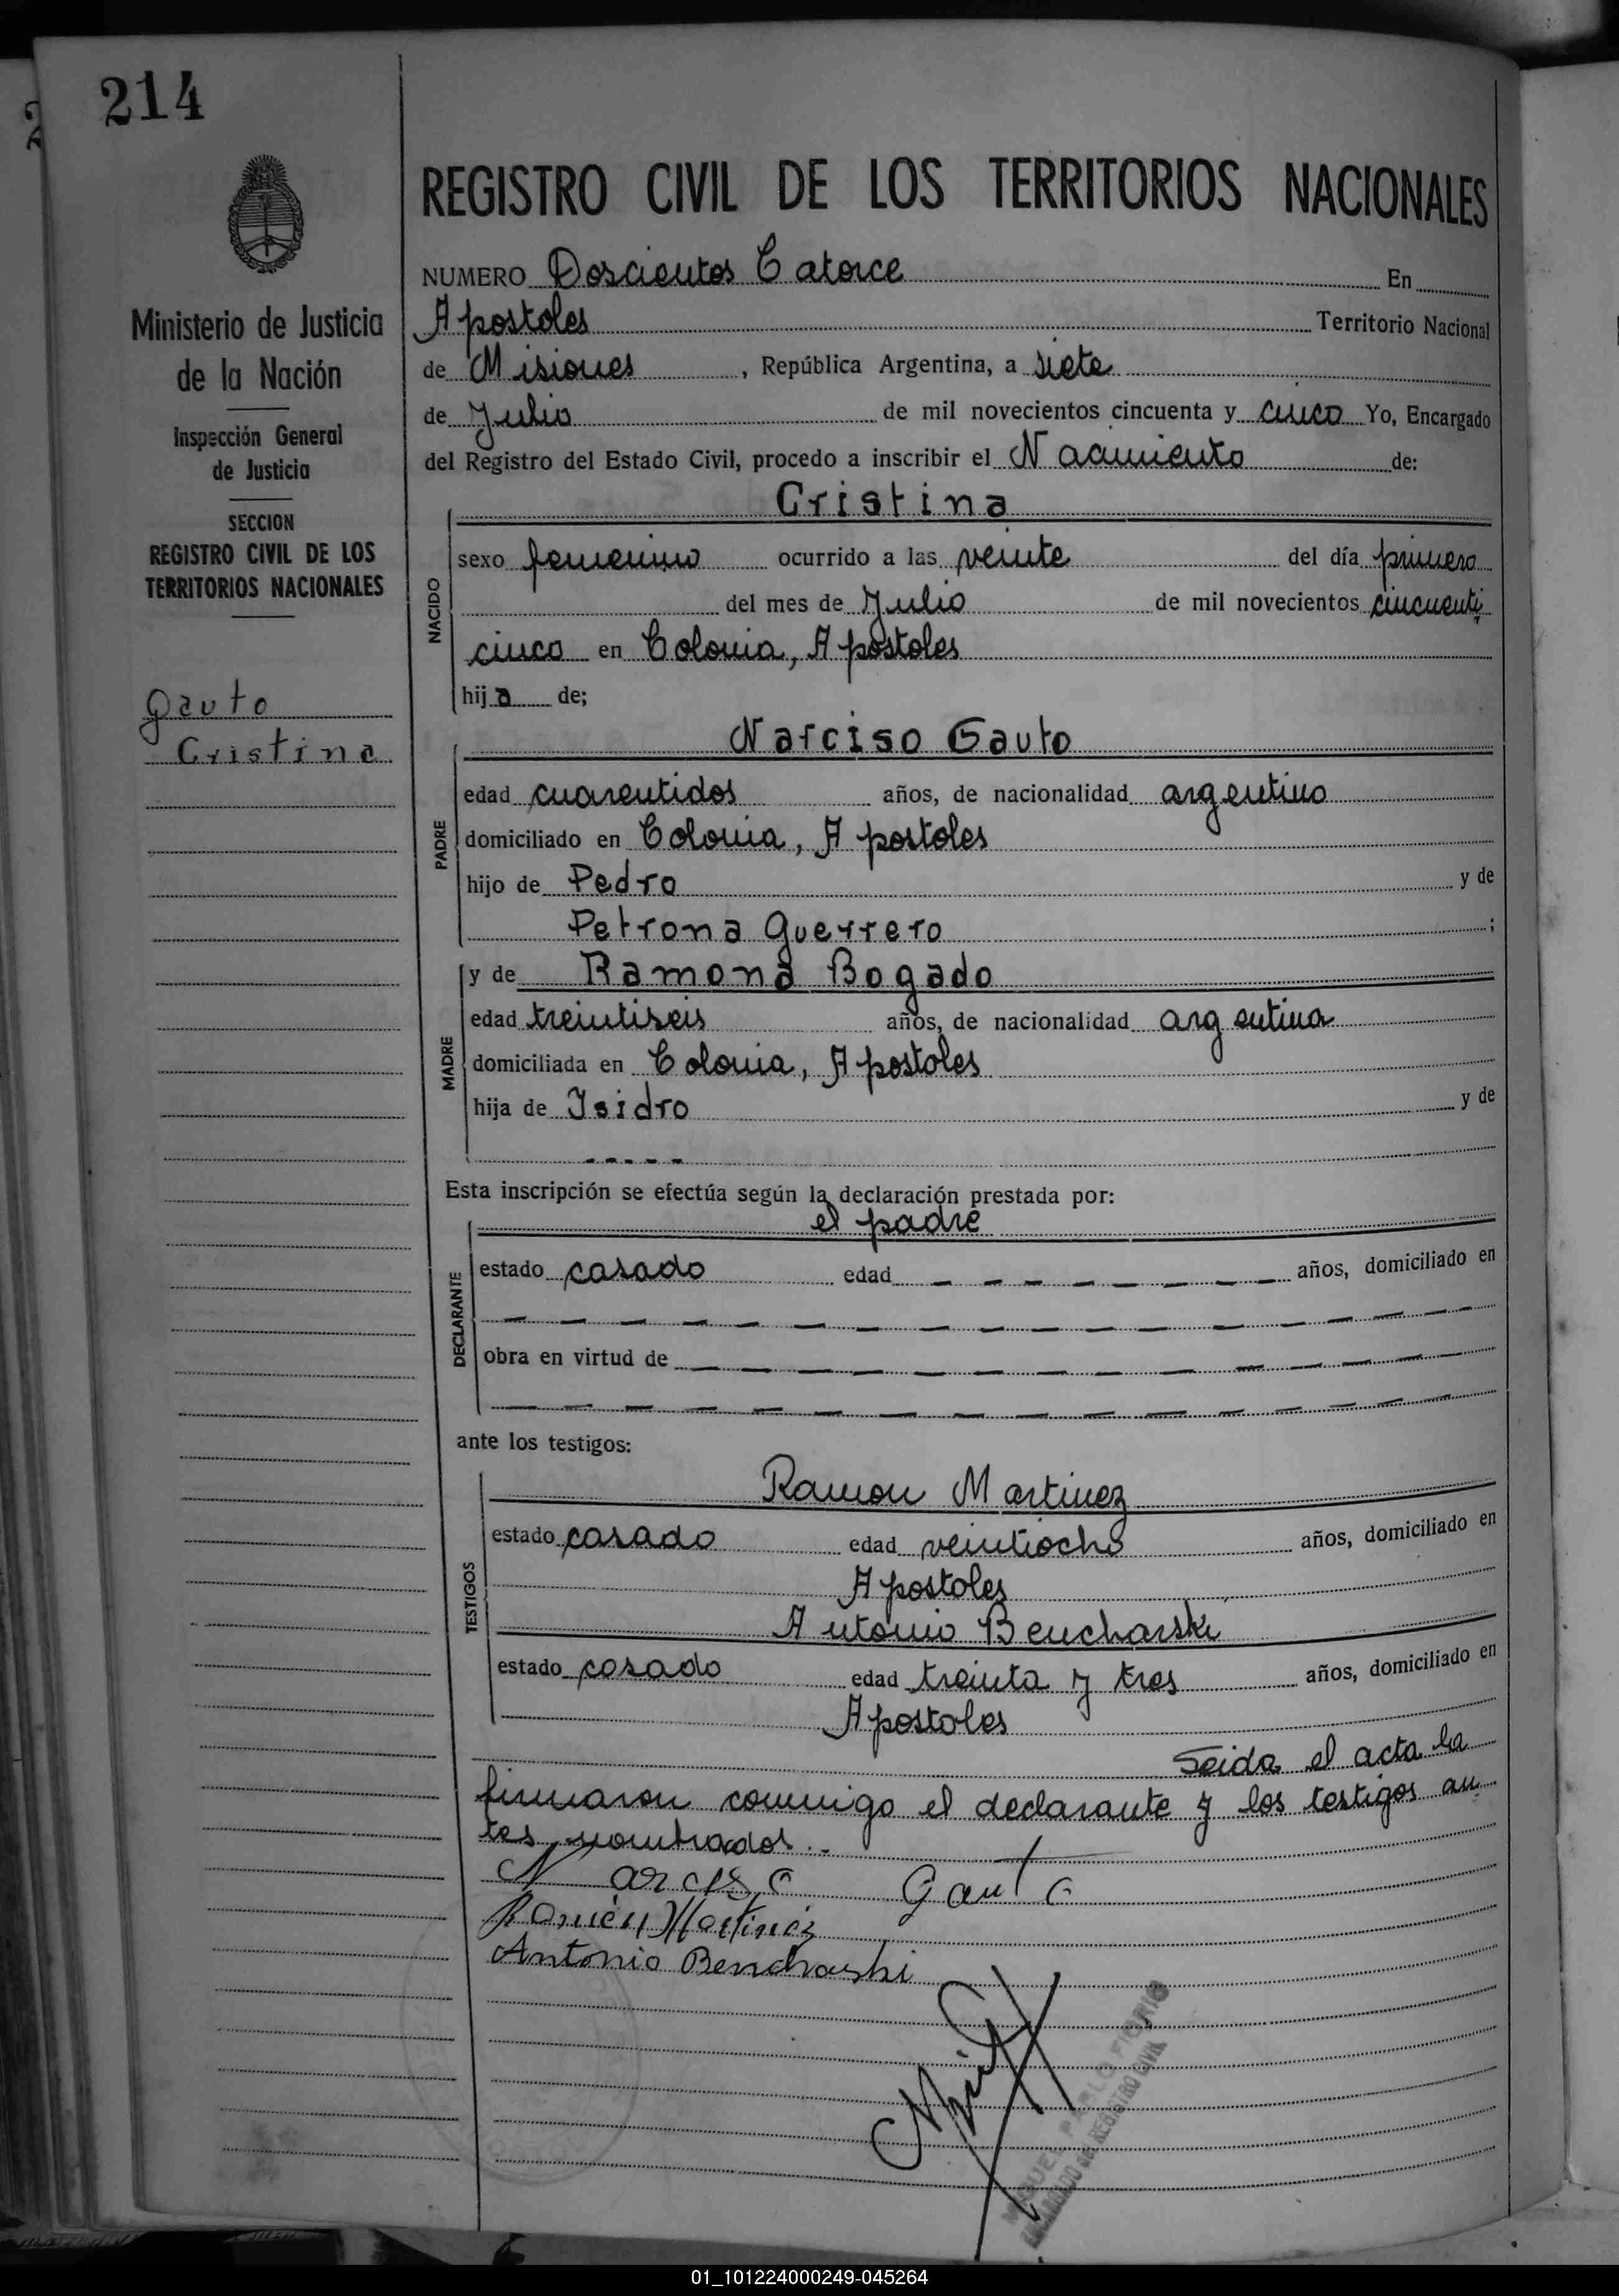 214
REGISTRO CIVIL DE LOS TERRITORIOS NACIONALES
Ministerio de Justicia
de la Nación
Inspección General
de Justicia
SECCION
REGISTRO CIVIL DE LOS
TERRITORIOS NACIONALES
Gauto
Cristina
NUMERO Doscientos Catorce En
Apostoles Territorio Nacional
de Misiones, República Argentina, a siete
de Julio de mil novecientos cincuenta y cinco Yo, Encargado
del Registro del Estado Civil, procedo a inscribir el Nacimiento de:
Cristina
NACIDO
sexo femenino ocurrido a las veinte del día primero
del mes de Julio de mil novecientos cincuenti
cinco en Colonia, Apostoles
hija de;
Narciso Gauto
PADRE
edad cuarentidos años, de nacionalidad argentino
domiciliado en Colonia, Apostoles
hijo de Pedro y de
Petrona Guerrero ;
y de Ramona Bogado
MADRE
edad treintiseis años, de nacionalidad argentina
domiciliada en Colonia, Apostoles
hija de Isidro y de
- - - - -
Esta inscripción se efectúa según la declaración prestada por:
el padre
DECLARANTE
estado casado edad - - - - - - - años, domiciliado en
obra en virtud de - - - - - - -
ante los testigos:
Ramon Martinez
TESTIGOS
estado casado edad veintiocho años, domiciliado en
Apostoles
Antonio Bencharski
estado casado edad treinta y tres años, domiciliado en
Apostoles
Leida el acta la
firmaron conmigo el declarante y los testigos an
tes nombrados.-
Narciso Gauto
Ramón Martinez
Antonio Bencharski
ENCARGADO del REGISTRO CIVIL
01_101224000249-045264